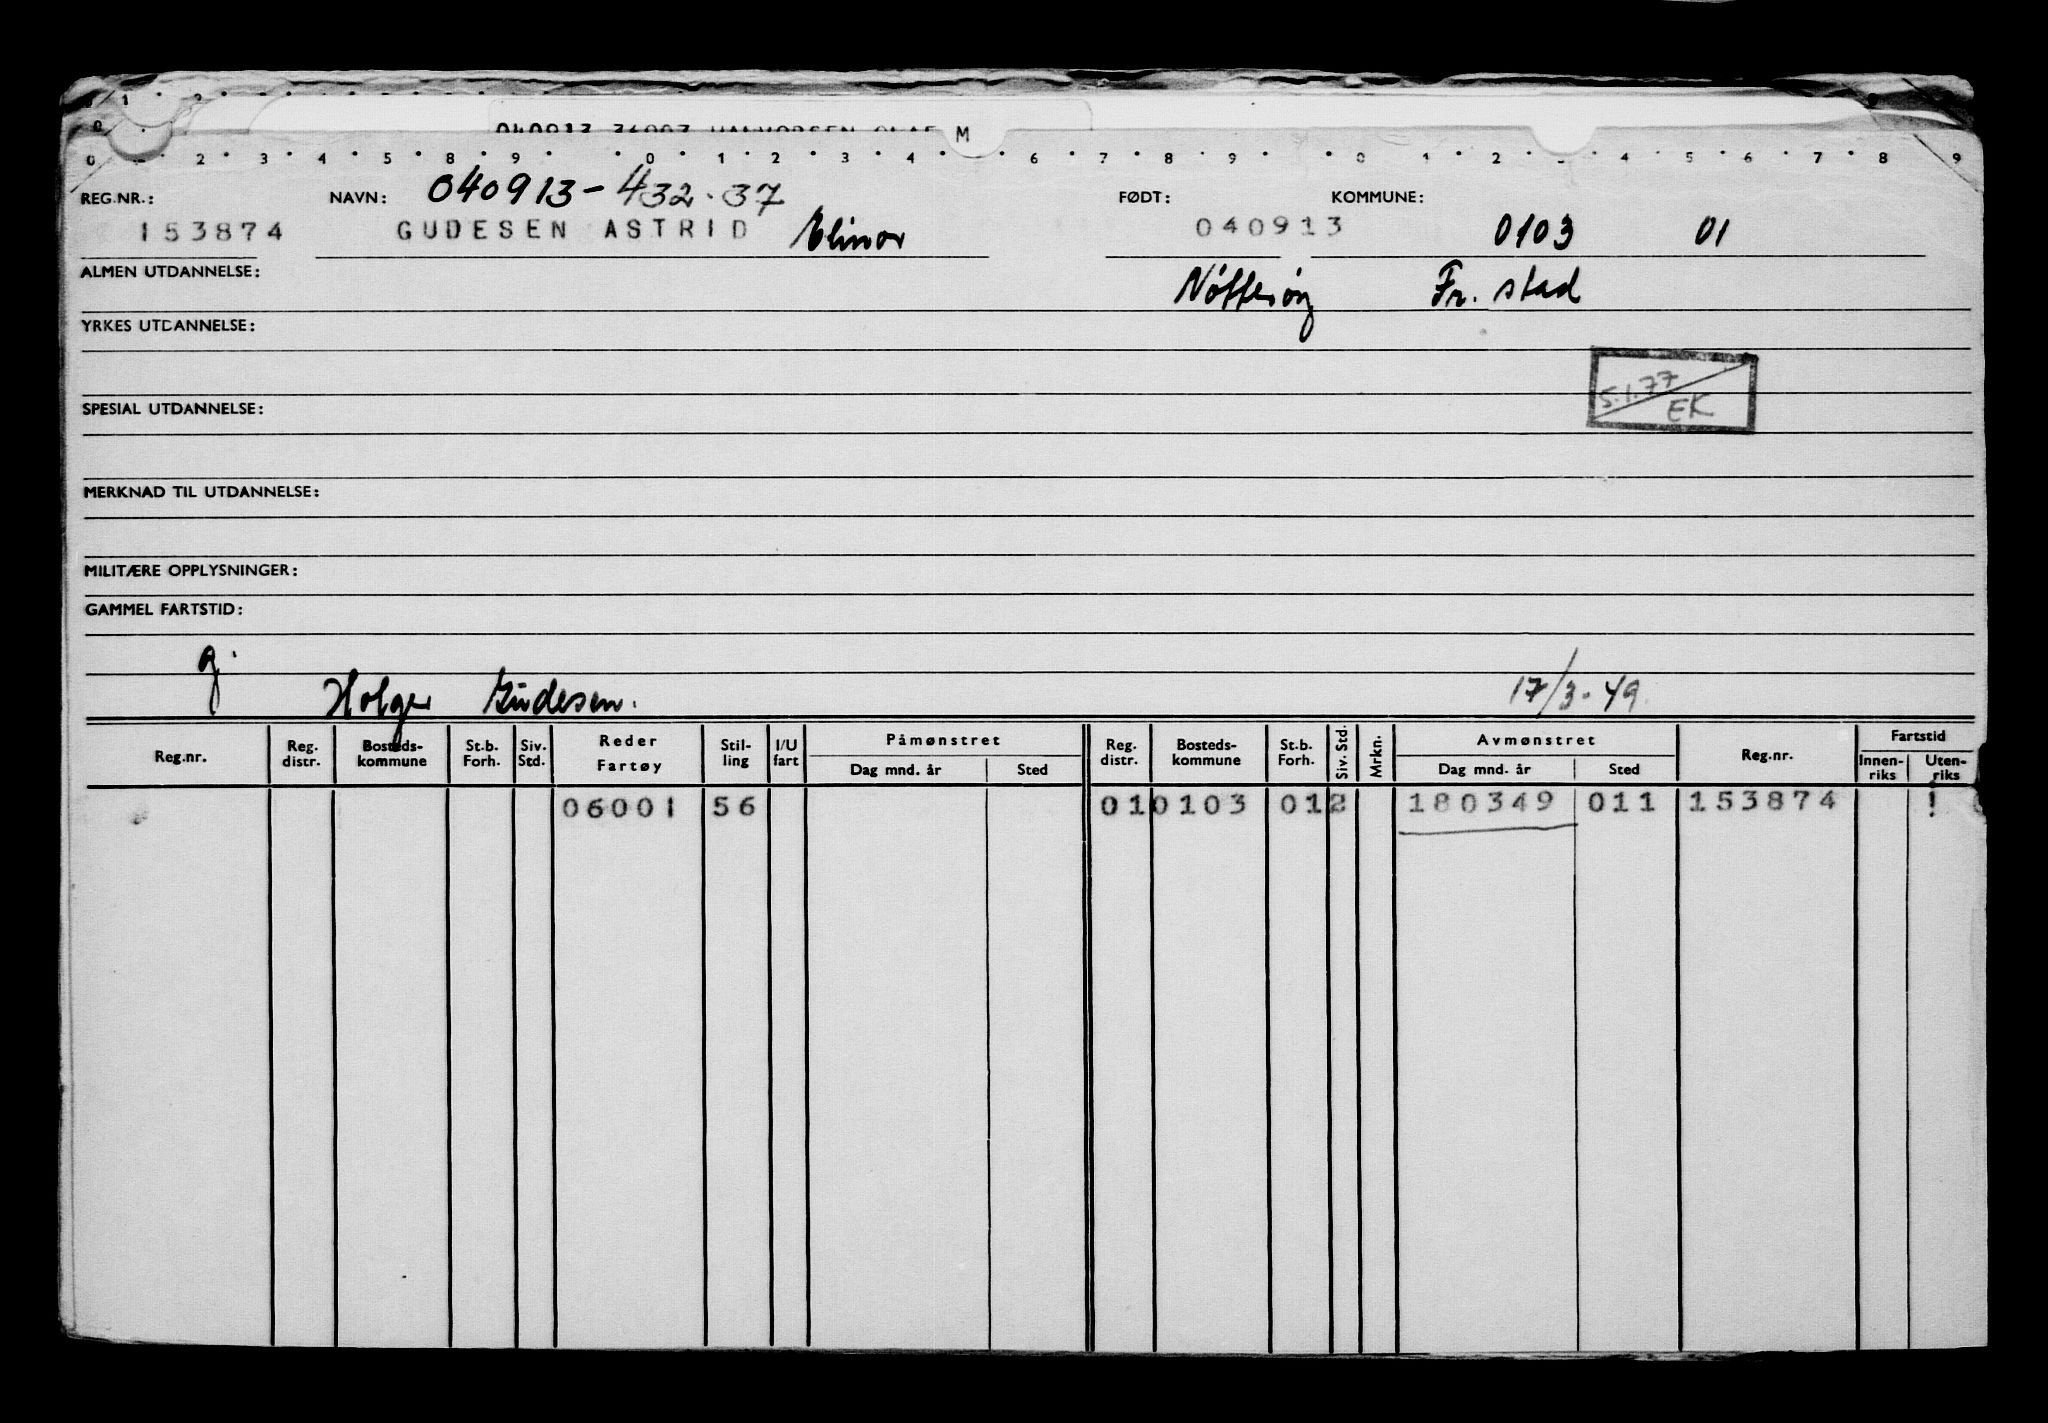 M
0 2 3 4 5 8 9 0 1 2 3 4 6 7 8 9 0 1 2 4 5 6 7 8 9
040913-432.37
REG.NR.: NAVN: FØDT: KOMMUNE:
153874 GUDESEN ASTRID Elinor 040913 0103 01
ALMEN UTDANNELSE: Nötterøy Fr.stad
YRKES UTDANNELSE:
5.1.77
EK
SPESIAL UTDANNELSE:
MERKNAD TIL UTDANNELSE:
MILITÆRE OPPLYSNINGER:
GAMMEL FARTSTID:
g.
Holger Gudesen. 17/3-49
Reg.nr. Reg. distr. Bosteds-kommune St.b. Forh. Siv. Std. Reder Fartøy Stil-ling I/U fart Påmønstret Dag mnd. år Sted Reg. distr. Bosteds-kommune St.b. Forh. Siv. Std. Mrkn. Avmønstret Dag mnd. år Sted Reg.nr. Fartstid Innen-riks Uten-riks
06001 56 01 0103 01 2 180349 011 153874